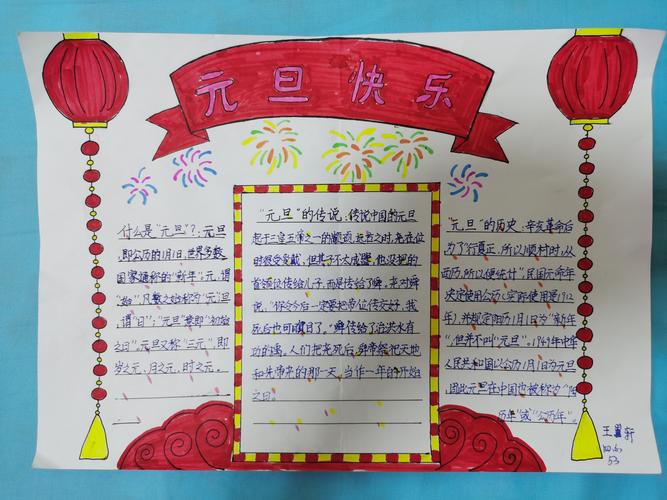 元旦快乐
什么是“元旦”?:元旦
即公历的1月1日,世界多数
国家通称的“新年”。元,谓
“始”,凡数之始称为“元”;旦
谓“日”;“元旦”意即“初始
之日”。元旦又称“三元”,即
岁之元、月之元、时之元。
“元旦”的传说:传说中国的元旦
起于三皇五帝之一的颛顼,远古之时,尧在位
时很受爱戴,但其子不太成器,他没把的
首领议传给儿子,而是传给了舜,尧对舜
说,“你今今后一定要把帝位传交好,我
死后也可瞑目了。”舜传给了治洪水有
功的禹,人们把尧死后,舜帝祭祀天地
和先帝尧的那一天,当作一年的开始
之日。
“元旦”的历史:辛亥革命后
为了“行夏正,所以顺村时,从
西历,所以便统计”,民国元年
决定使用公历(实际使用是1912
年),并规定阳历1月1日为“新年”
,但并不叫“元旦”。1949年中华
人民共和国以公历1月1日为元旦
,因此元旦在中国也被称为“阳
历年”或“公历年”。
王 轩
53